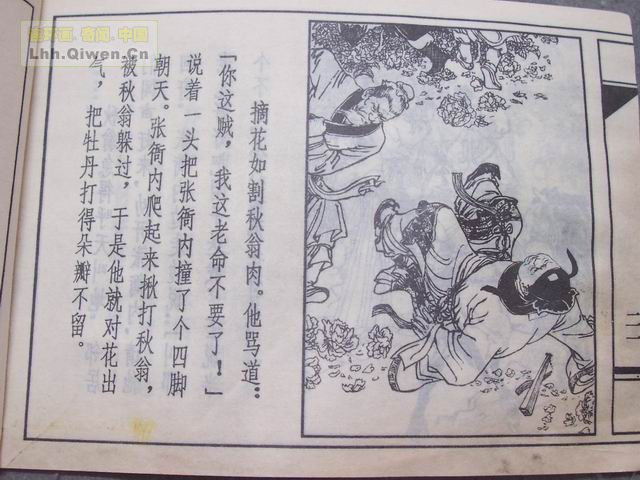 连环画 中国
Lhh.Qiwen.Cn
摘花如割秋翁肉。他骂道：
“你这贼，我这老命不要了！”
说着一头把张衙内撞了个四脚
朝天。张衙内爬起来揪打秋翁，
被秋翁躲过，于是他就对花出
气，把牡丹打得朵瓣不留。